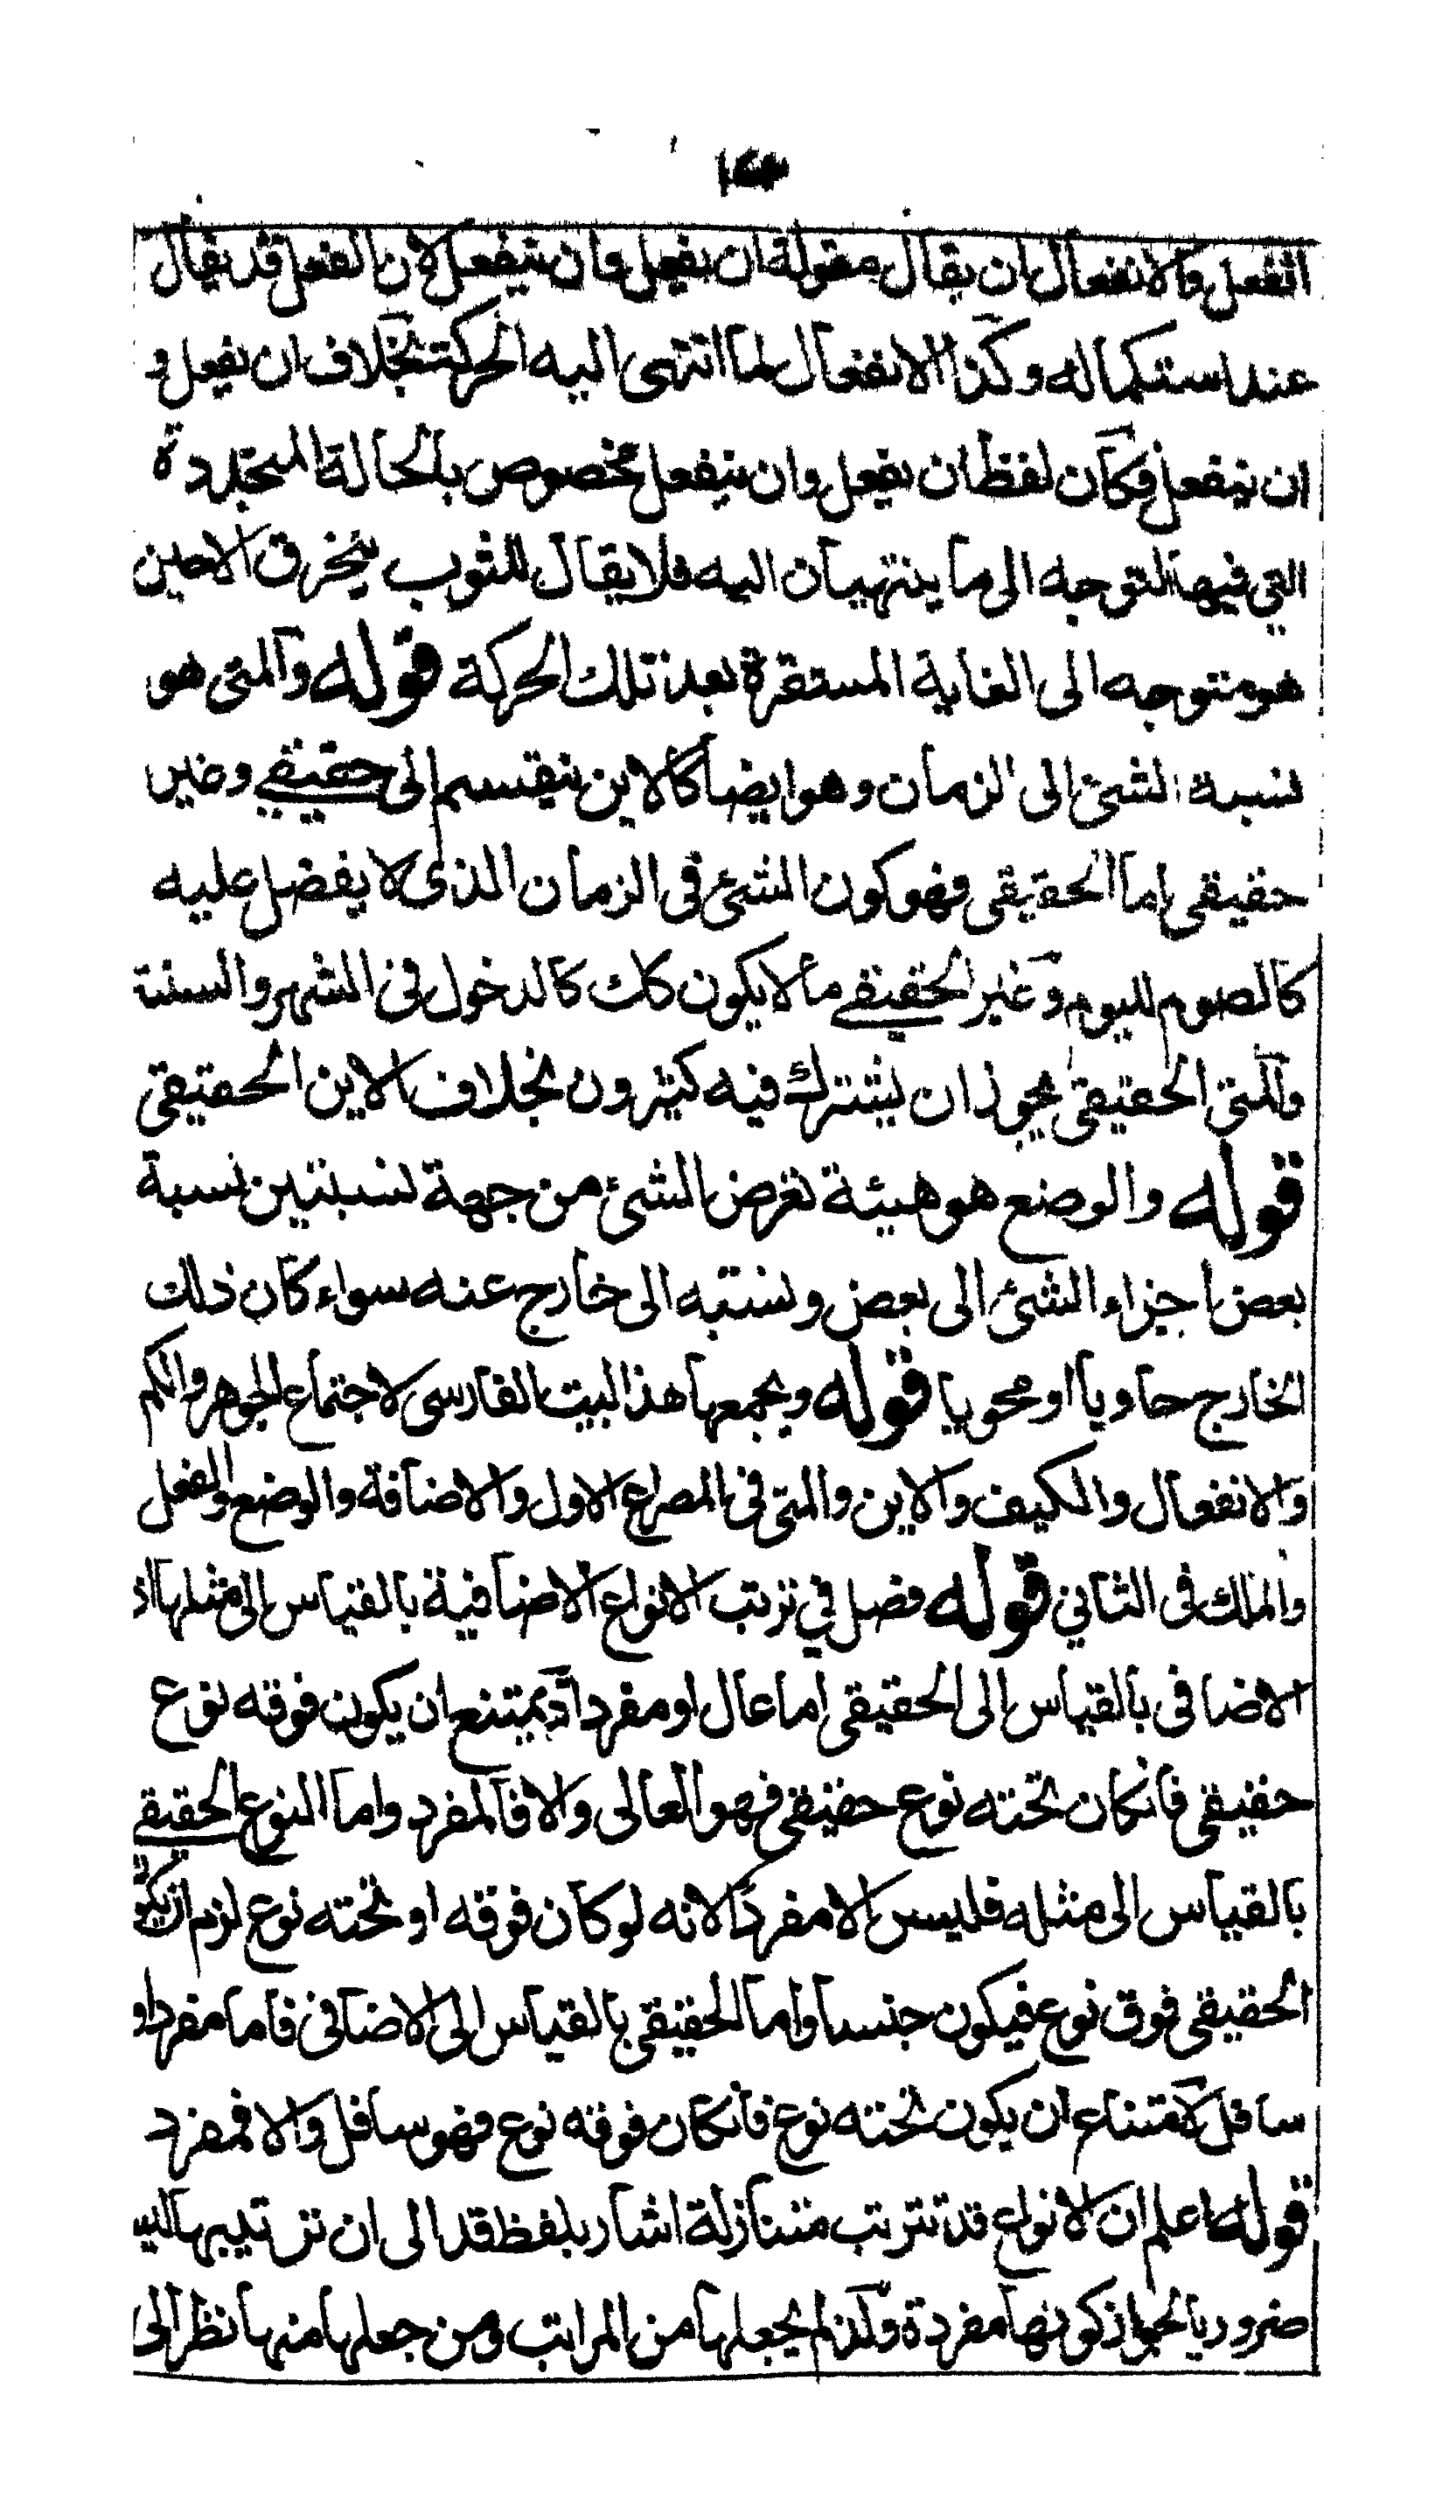 الفعل والانفعال بان يقال مقولة ان يفعل وان ينفعل لان الفعل قد يقال
عند استكماله وكذا الانفعال لما انتهى اليه الحركة بخلاف ان يفعل و
ان ينفعل فكان لفظ ان يفعل وان ينفعل مخصوص بالحالة المتجددة
التي فيها التوجه الى ما ينتهيان اليه فلا يقال للثوب ينخرق الا حين
هو متوجه الى الغاية المستقرة بعد تلك الحركة قوله والمتى هو
نسبة الشئ الى الزمان وهو ايضا كالاين ينقسم الى حقيقي وغير
حقيقي اما الحقيقي فهو كون الشئ في الزمان الذي لا يفضل عليه
كالصوم لليوم وغير الحقيقي ما لا يكون كك كالدخول في الشهر والسنة
والمتى الحقيقي يجوز ان يشترك فيه كثيرون بخلاف الاين الحقيقي
قوله والوضع هو هيئة تعرض الشئ من جهة نسبتين نسبة
بعض اجزاء الشئ الى بعض ونسبته الى خارج عنه سواء كان ذلك
الخارج حاويا او محويا قوله ويجمعها هذا البيت الفارسى لاجتماع الجوهر والكم
والانفعال والكيف والاين والمتى في المصراع الاول والاضافة والوضع والفعل
والملك في الثاني قوله فصل في ترتب الانواع الاضافية بالقياس الى مثلها اذ
الاضافى بالقياس الى الحقيقى اما عال او مفرد اذ يمتنع ان يكون فوقه نوع
حقيقى فانكان تحته نوع حقيقى فهو العالى والا فالمفرد واما النوع الحقيقي
بالقياس الى مثله فليس الا مفردا لانه لو كان فوقه او تحته نوع لزم ان يكون
الحقيقى فوق نوع فيكون جنسا واما الحقيقى بالقياس الى الاضافى فاما مفرد او
سافل لامتناع ان يكون تحته نوع فانكان فوقه نوع فهو سافل والا فمفرد
قوله اعلم ان الانواع قد تترتب متنازلة اشار بلفظ قد الى ان ترتيبها ليس
ضروريا لجواز كونها مفردة ولذا لم يجعلها من المراتب ومن جعلها منها نظر الى